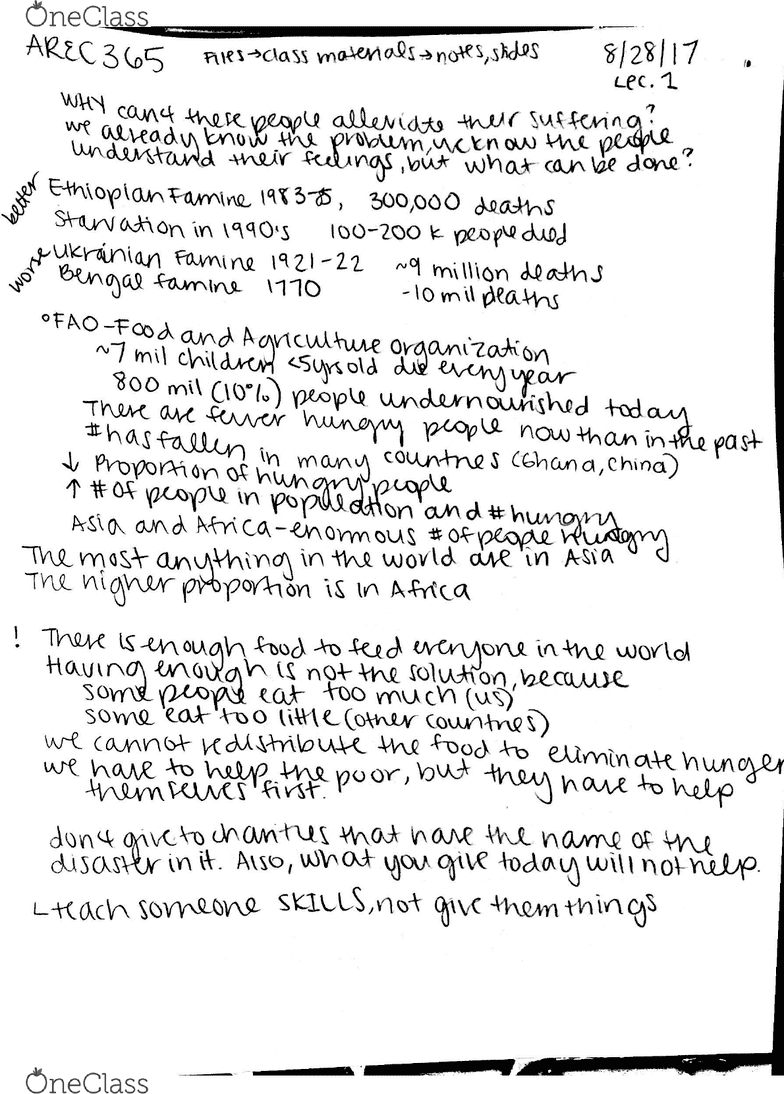 OneClass
AREC365 Files→class materials→notes, slides 8/28/17
Lec. 1
WHY can't these people alleviate their suffering?
we already know the problem, we know the people
understand their feelings, but what can be done?
better Ethiopian Famine 1983-85, 300,000 deaths
Starvation in 1990's 100-200 k people died
worse Ukranian Famine 1921-22 ~9 million deaths
Bengal famine 1770 -10 mil deaths
°FAO-Food and Agriculture organization
~7 mil children <5yrs old die every year
800 mil (10%) people undernourished today
There are fewer hungry people now than in the past
# has fallen in many countries (Ghana, China)
↓ Proportion of hungry people
↑ # of people in population and # hungry
Asia and Africa-enormous # of people hungry
The most anything in the world are in Asia
The higher proportion is in Africa
! There is enough food to feed everyone in the world
Having enough is not the solution, because
some people eat too much (us)
some eat too little (other countries)
we cannot redistribute the food to eliminate hunger
we have to help the poor, but they have to help
themselves first.
don't give to charities that have the name of the
disaster in it. Also, what you give today will not help.
∟teach someone SKILLS, not give them things
OneClass